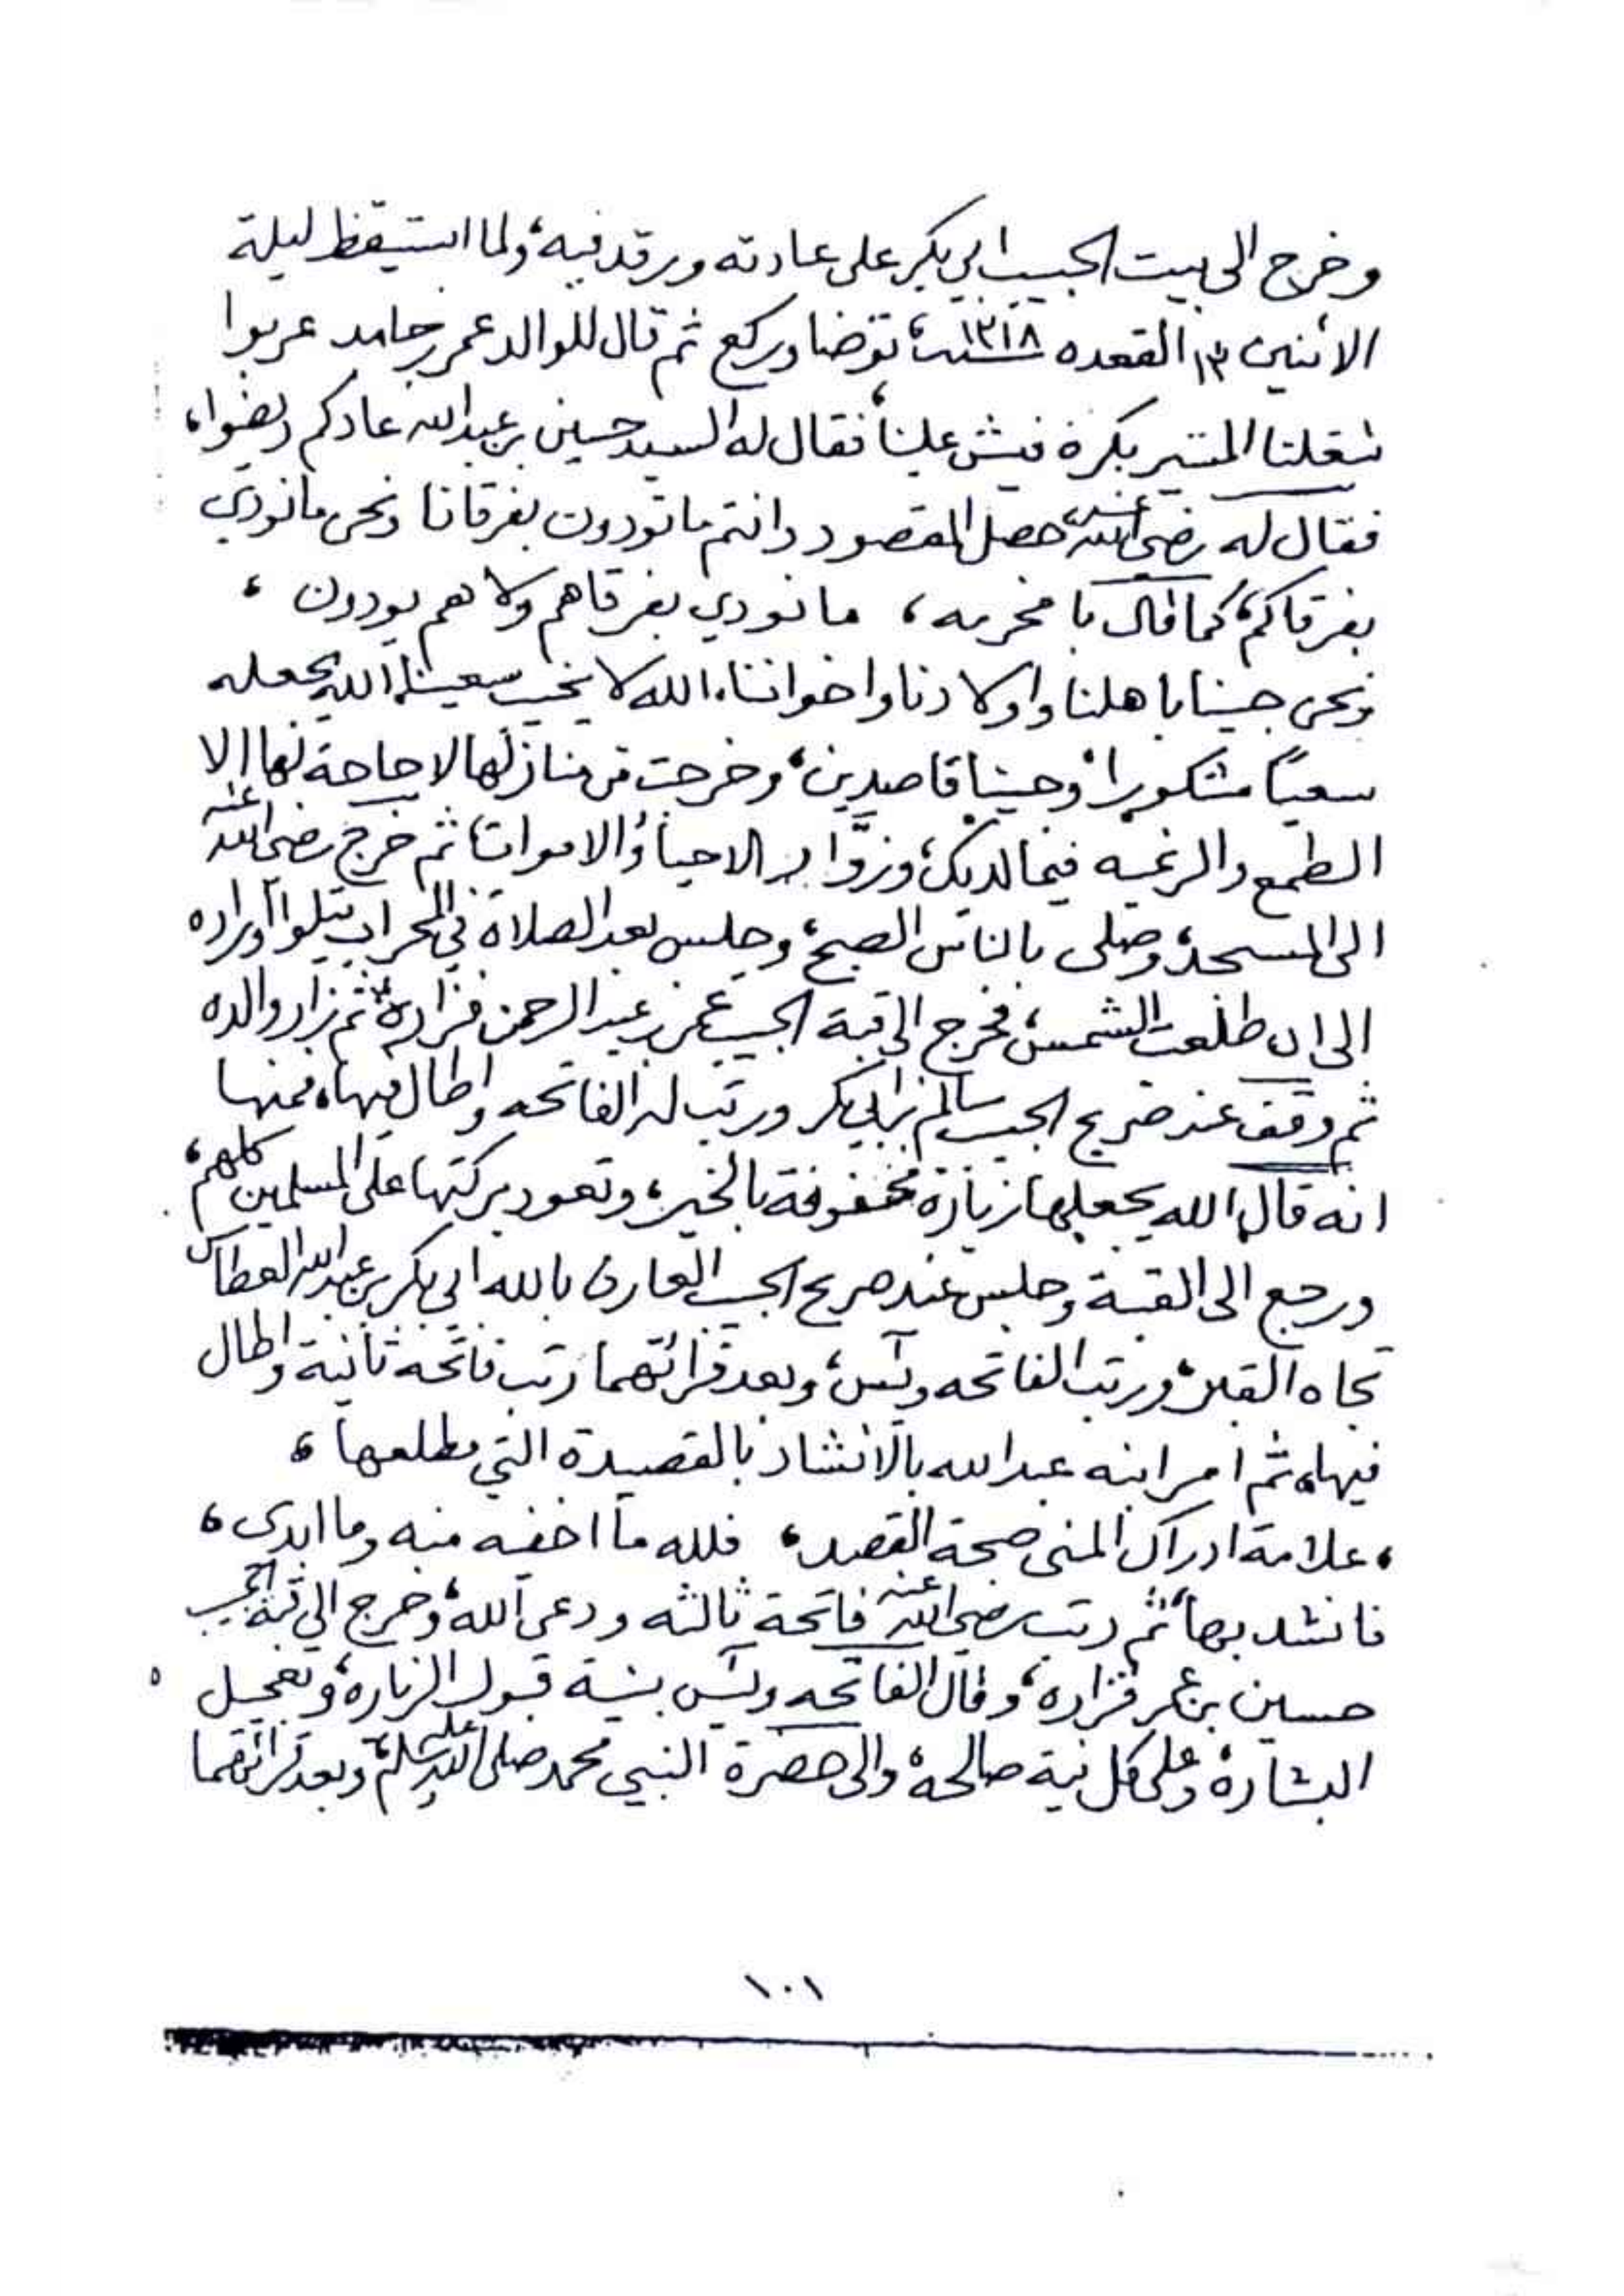 وخرج الى بيت الحبيب ابي بكر على عادته ورقد فيه، ولما استيقظ ليلة
الاثنين ١٣ القعده سنة ١٣١٨، توضا وركع ثم قال للوالد عمر بن حامد عربوا
ثقلنا المتسير بكرة فيش علينا، فقال له السيد حسين بن عبدالله عادكم
فقال له رضي الله عنه حصل المقصود وانتم ماتودون بفرقانا ونحن مانودي
بفرقاكم، كما قال با مخرمه، مانودي بفرقاهم ولا هم يودون،
ونحن جينا باهلنا واولادنا واخواننا، الله لا يخيب سعينا، الله يجعله
سعيًا مشكورا، وجينا قاصدين، وخرجت من منازلها لا حاجة لها الا
الطمع والرغبه فيما لديك، وزوَّار الاحياء والاموات، ثم خرج رضي الله عنه
الى المسجد، وصلى بالناس الصبح، وجلس بعد الصلاة في المحراب يتلوا أوراده
الى ان طلعت الشمس، فخرج الى قبة الحبيب عمر بن عبدالرحمن فزاره، ثم زار والده
ثم وقف عند ضريح الحبيب سالم بن ابي بكر ورتب له الفاتحه واطال فيها، فمنها
انه قال الله يجعلها زيارة محفوفة بالخير، وتعود بركتها على المسلمين كلهم،
ورجع الى القبة وجلس عند ضريح الحبيب العارف بالله ابي بكر بن عبدالله العطاس
تجاه القبر، ورتب الفاتحه ويس، وبعد قرائتهما رتب فاتحه ثانية واطال
فيها، ثم امر ابنه عبدالله بالانشاد بالقصيدة التي مطلعها،
، علامة ادراك المنى صحة القصد، فلله ما اخفيه منه وما ابدى،
فانشد بها، ثم رتب رضي الله عنه فاتحة ثالثه ودعى الله، وخرج الى قبة الحبيب
حسين بن عمر فزاره، وقال الفاتحه ويس بنية قبول الزياره، وتعجيل
البشاره، وعلى كل نية صالحه، والى حضرة النبي محمد صلى الله عليه وسلم، وبعد قرائتهما
١٠١